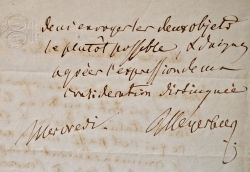 de m'envoyer les deux objets
le plutot possible, & daignez
agréer l'expression de ma
considération distinguée
Mercredi. GMeyerbeer